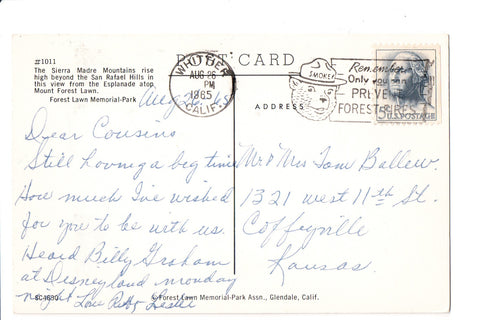 #1011
The Sierra Madre Mountains rise
high beyond the San Rafael Hills in
this view from the Esplanade atop
Mount Forest Lawn.
Forest Lawn Memorial-Park
POST CARD
WHITTIER
AUG 26
PM
1965
CALIF.
SMOKEY
Remember
Only you can
PREVENT
FOREST FIRES
5c
U.S. POSTAGE
ADDRESS
Aug 26
Dear Cousins
Still hoving a big time
How much I've wished
for you to be with us.
Heard Billy Graham
at Disneyland monday
night Love Leslie
Mr & Mrs Tom Ballew.
1321 west 11th St.
Coffeyville
Kansas.
© Forest Lawn Memorial-Park Assn., Glendale, Calif.